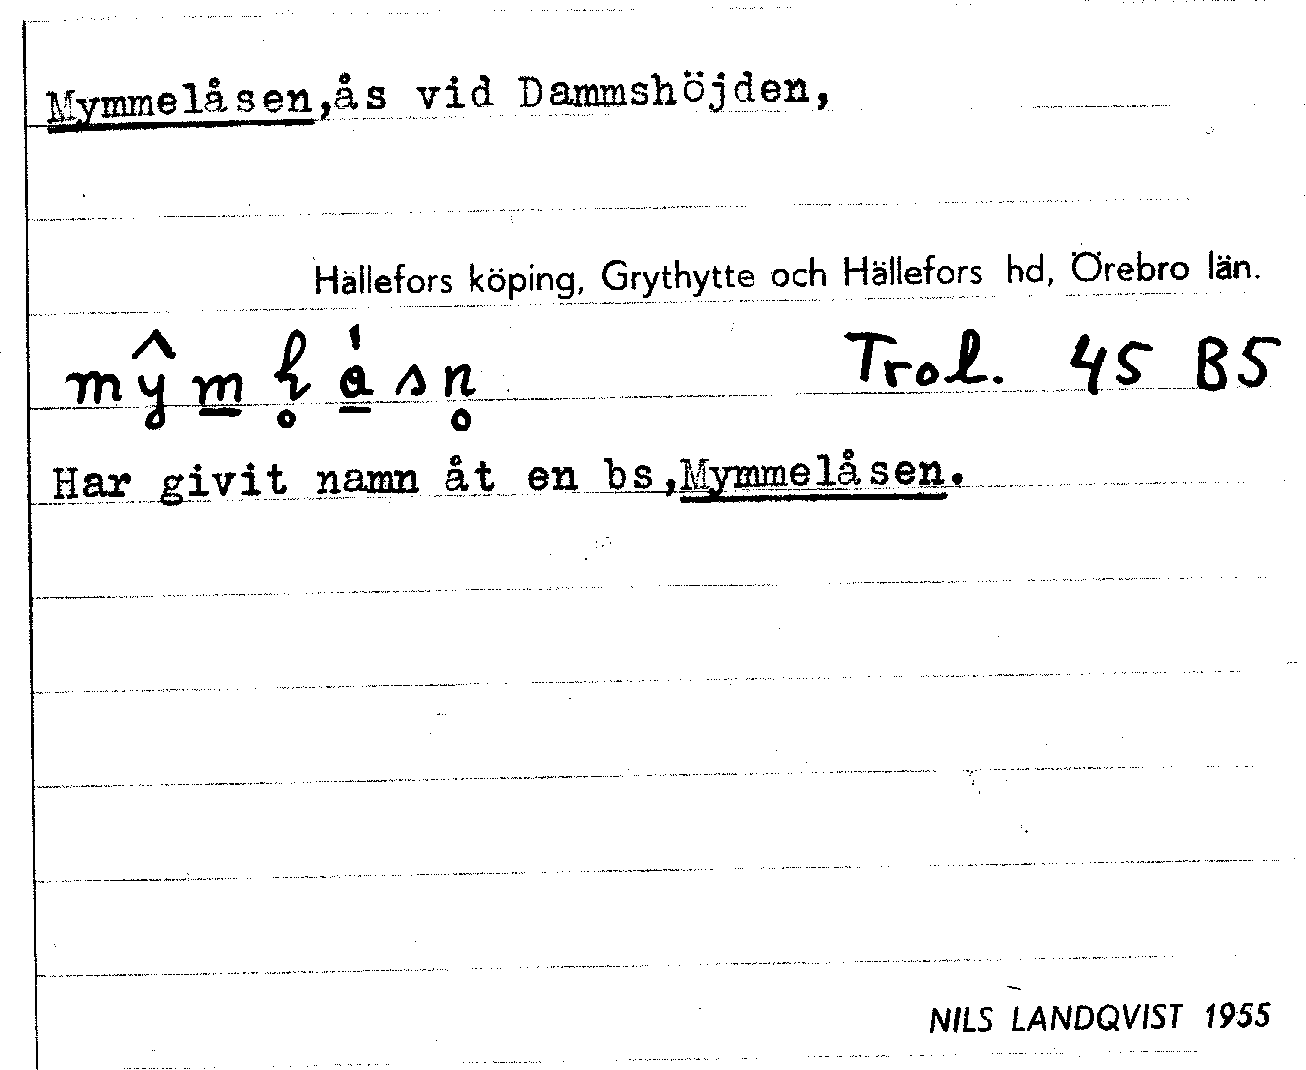 Mymmelåsen,ås vid Dammshöjden,
Hällefors köping, Grythytte och Hällefors hd, Örebro län.
Trol. 45 B5
Har givit namn åt en bs,Mymmelåsen.
NILS LANDQVIST 1955